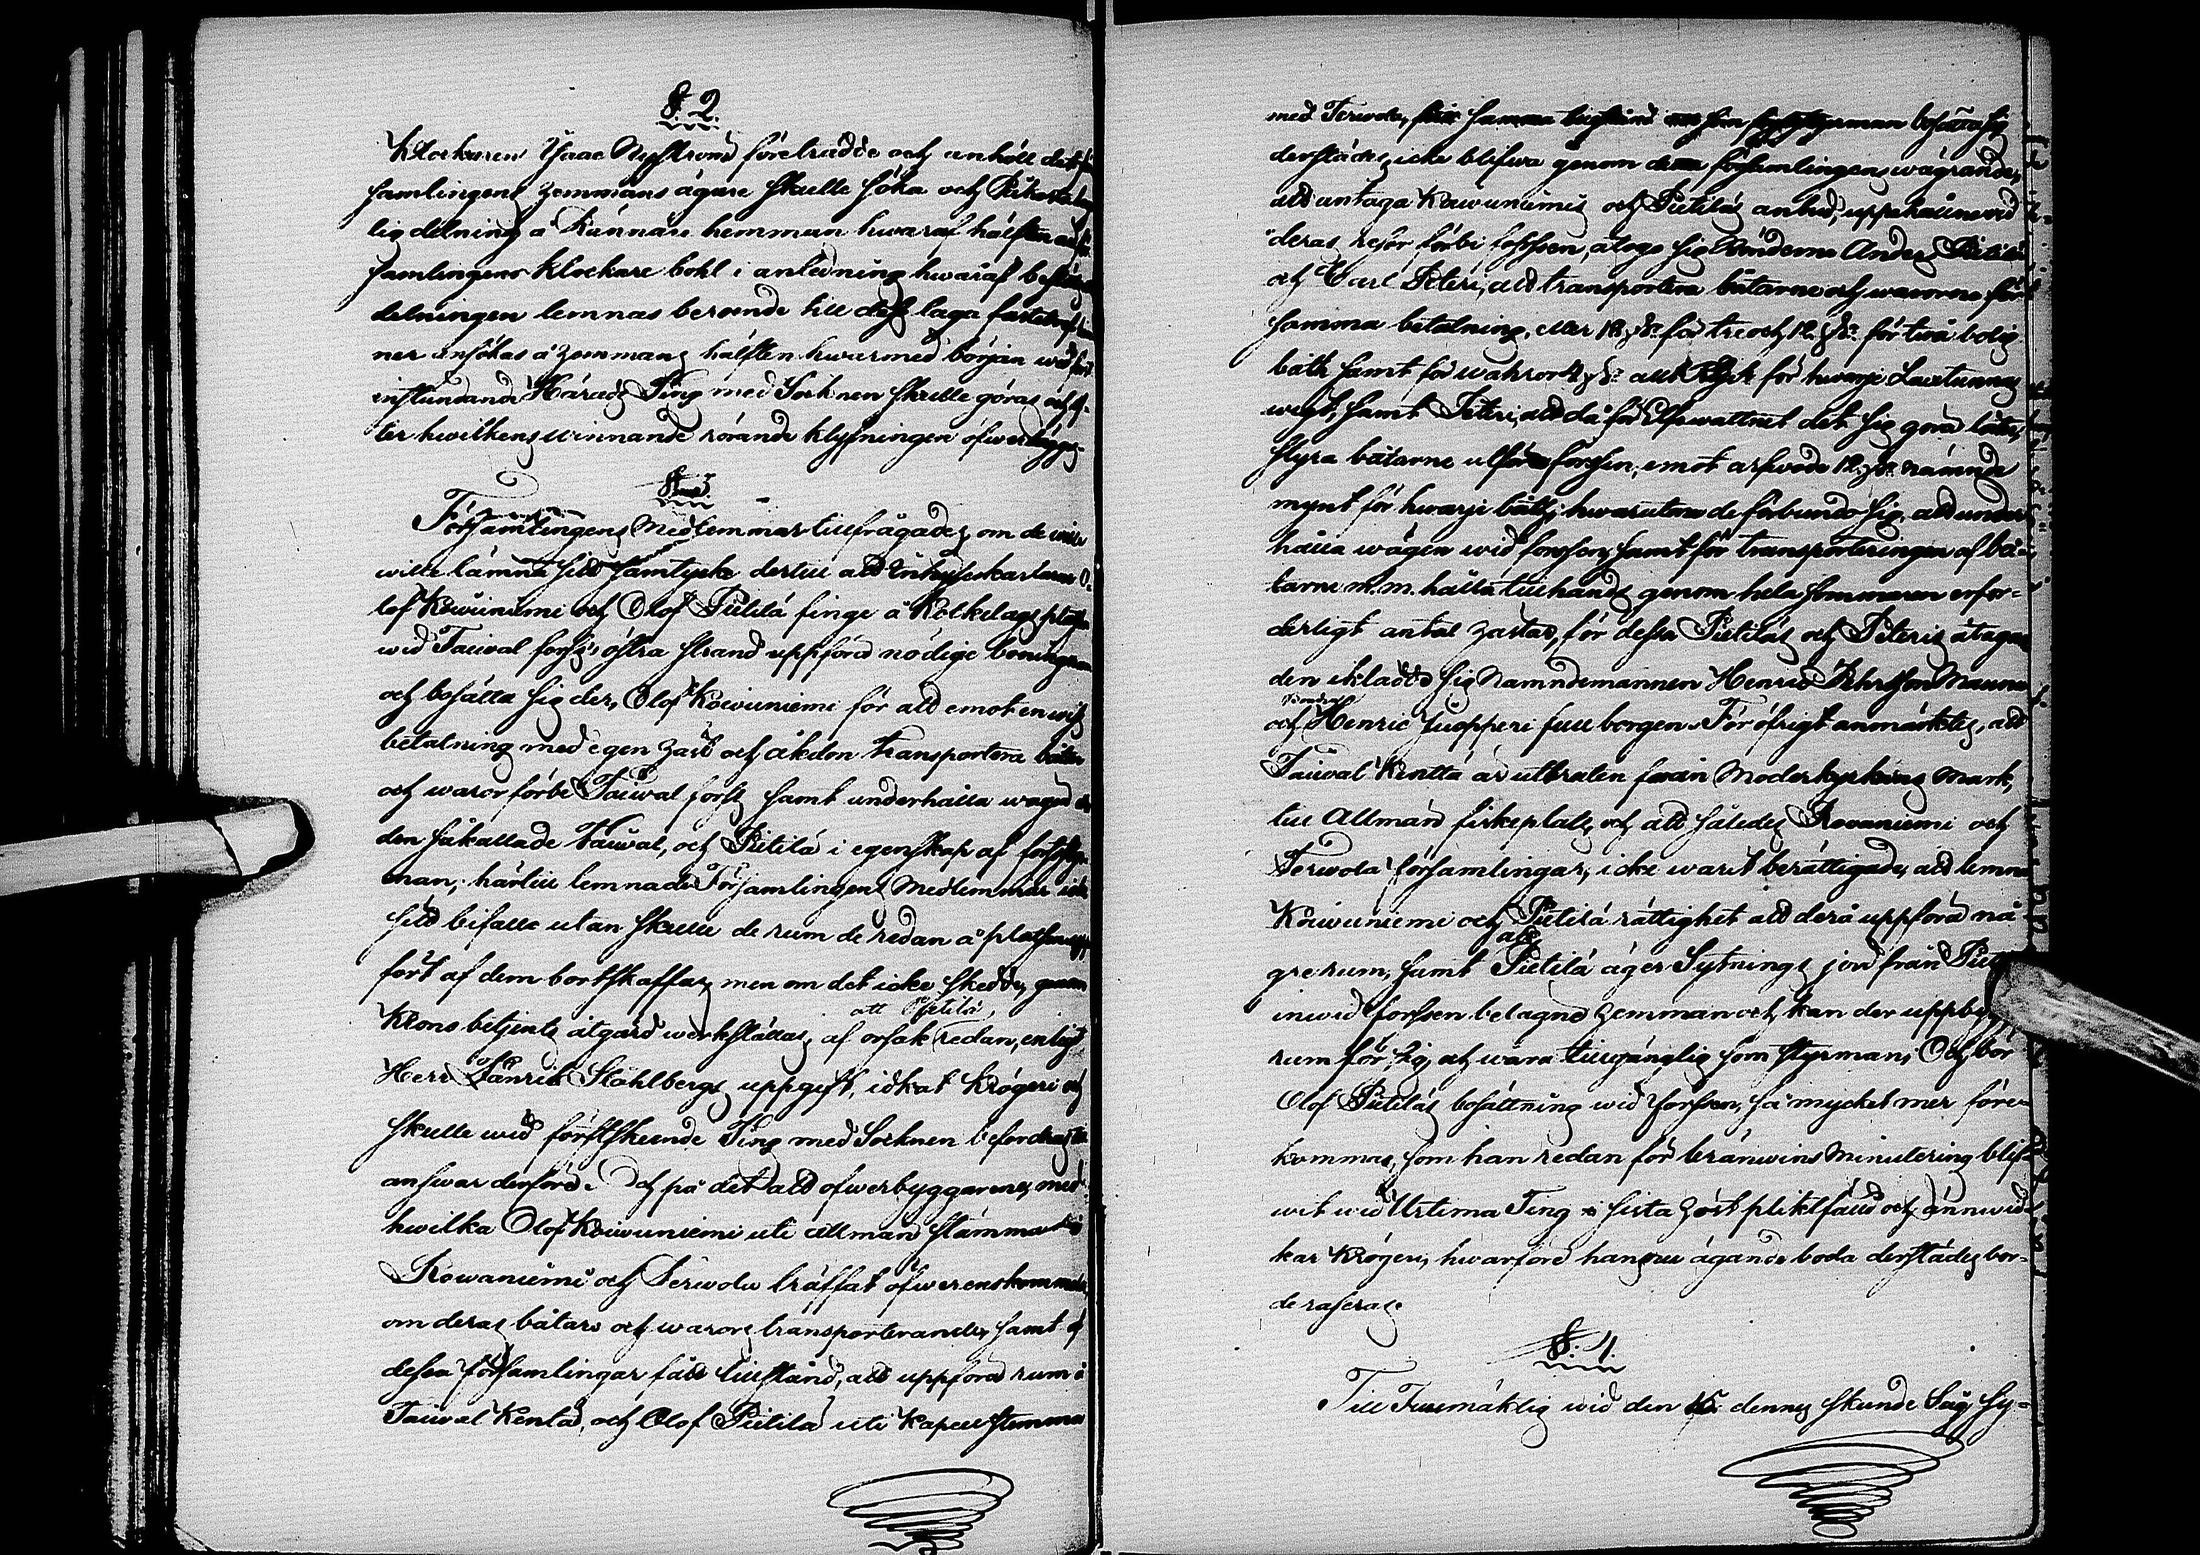 §. 2.
Klockaren Isaac Nyström förelrädde och anhöll det för
samlingens hemmans ägare skulle söka och
lig delning å Kännäre hemman hwaraf hälften är för
samlingens klockare bohl i anledning hwaraf beslöts
delningen lemnas beroende till dess laga
ner ansökas å hemmans hälften hwarmed början wid först
instundande Härads Ting med Socknen skulle göras och ef-
ter hwilkens winnande rörande klyfningen öfwerlägges
§. 3.
Församlingens Medlemmar tillfrågades, om de
wille lämna sitt samtycke dertill att Inhysekarlarne O-
lof Koiwuniemi och Olof Pietilä finge å Kolkelags platsen
wid Taiwal forss, östra strand uppföra nödige boningsrum
och bosätta sig der, Olof Koiwuniemi för att emot en wiss
betalning med egen häst och åkdon transportera båtar
och waror förbi Taiwal forss samt underhålla wägen
den såkallade Taiwal, och Pietilä i egenskap af forsstyr-
man; härtill lemnade Församlingens Medlemmar icke
sitt bifall utan skulle de rum de redan å platsen upp-
fört af dem bortskaffas, men om det icke skedde, genom
Krono betjents åtgärd werkställas, af orsak att Pietilä, redan, enligt
Herr Länsm Ståhlbergs uppgift, idkat krögeri och
skulle wid förstskeende Ting med Socknen befordras till
answar derföre. Och på det att öfwerbyggarena, med
hwilka Olof Koiwuniemi uti allmän stämma i
Rowaniemi och Terwola träffat öfwerenskommelse
om deras båtars och warors transporterande, samt af
dessa församlingar fått tillstånd, att uppföra rum å
Taiwal Kenttä, och Olof Pietilä uti Kapell stemma
med Terwola, samma tillstånd som forsstyrman bosätta sig
derstädes, icke blifwa genom församlingens wägrande,
att antaga Koiwuniemis och Pietiläs anbud, uppehållne wid
deras resor förbi forssen, åtogo sig Bönderne Anders Pietilä
och Carl Peteri, att transportera båtarne och warorne för
samma betalning, eller 18 för tre och 12 för twå bolig
båth samt för wahror 4 allt för hwarje Lasttunnas
wigt, samt Peteri, att då för Elfwattnet det sig göra låter,
styra båtarne utför forssen, emot arfwode 12 nämnde
mynt för hwarje båth; hwarutom de förbundo sig, att under-
hålla wägen wid forssen samt för transporteringen af bå-
tarne m. m. hålla tillhands genom hela sommaren erfor-
derligt antal hästar, för dessa Pietiläs och Peteris åtagan-
den iklädde sig Nämndemannen Henric Pehrsson Mauno
och Bonden Henric Juopperi full borgen. För öfrigt anmärktes, att
Taiwal Kenttä är utbruten från Moderkyrkans Mark,
till Allmän fiskeplats, och att således Rovaniemi och
Terwola församlingar, icke warit berättigade, att lemna
Koiwuniemi och Pietilä rättighet att derå uppföra nå-
gre rum, samt att Pietilä äger Sytnings jord från
inwid forssen belägne hemman och kan der uppbygga
rum för sig och wara tillgänglig som styrman, Och bör
Olof Pietiläs bosättning wid forssen, så mycket mer före-
kommas, som han redan för bränwins Minutering blif-
wit wid Urtima Ting sista höst pliktfäld och ännu id-
kar krögeri, hwarföre hans ägande boda derstädes bor-
de raseras.
§. 4.
Till Fullmäktig wid den 15 dennes skeende Såg Sy-